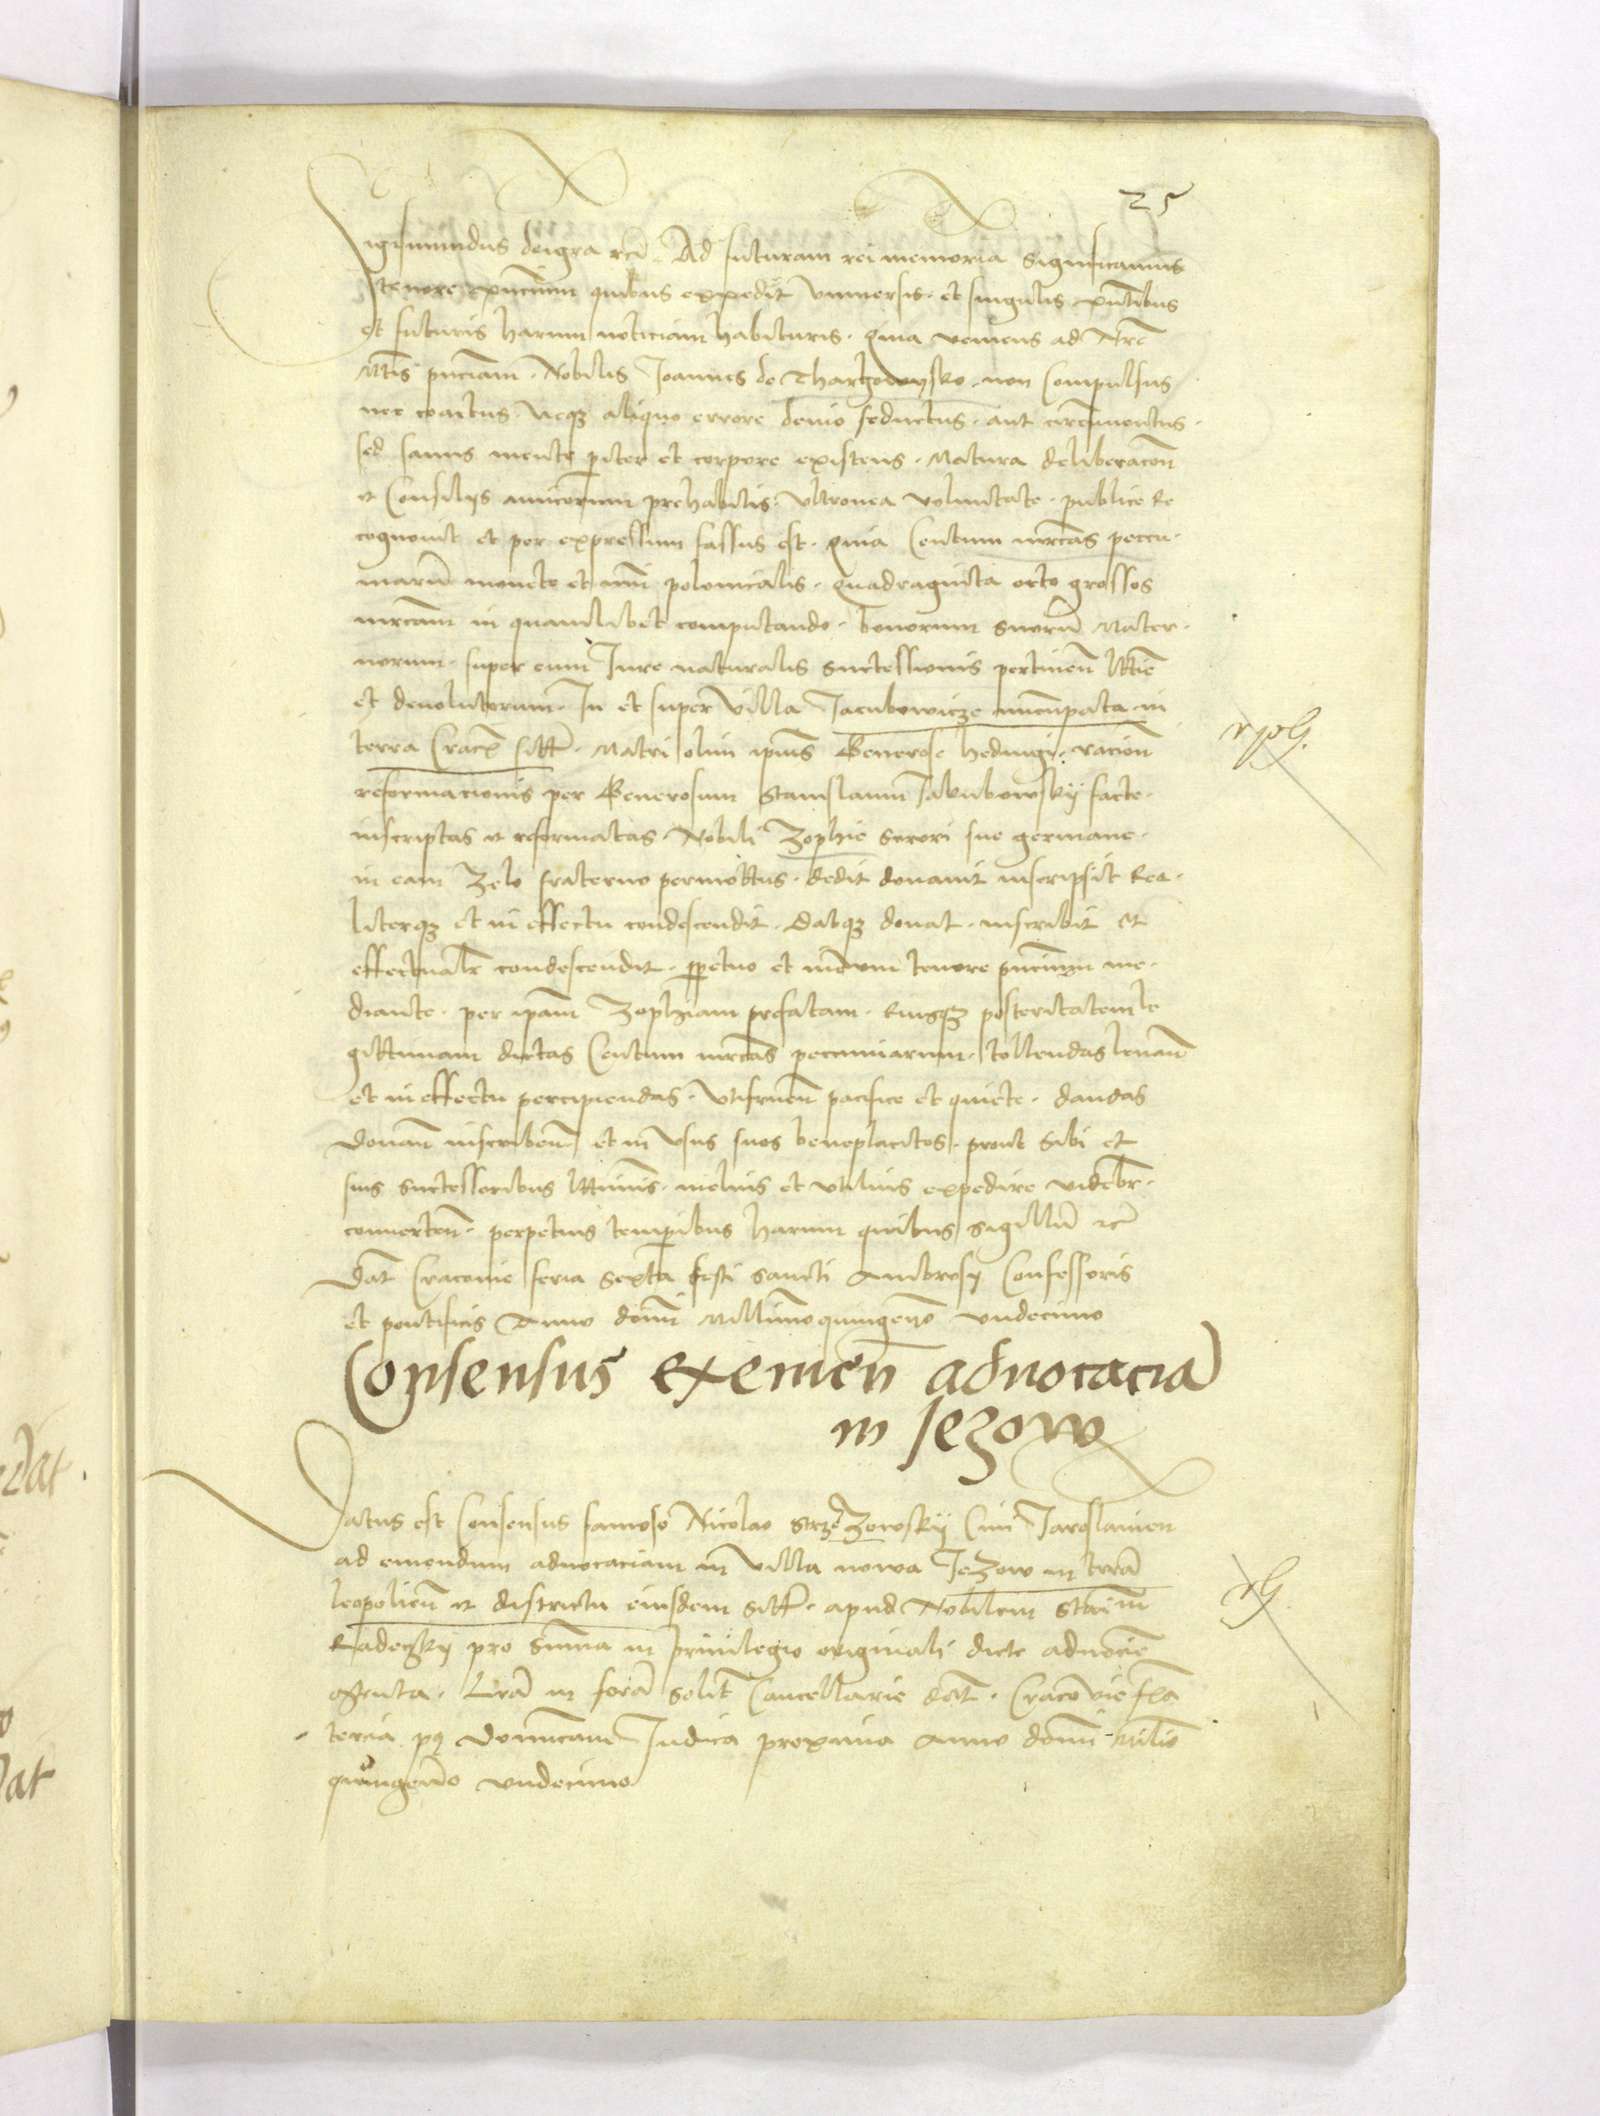 25
Sigismundus dei gra rc̃. Ad futuram rei memoria Significamus
tenore pn̄cium quibus expedit vniuersis et singulis pn̄tibus
et futuris harum noticiam habituris. Quia veniens ad Nr̄e
Mt̄is pn̄ciam Nobilis Joannes de Thargowysko non Compulsus
nec coactus Neqȝ aliquo errore denio seductus aut circūuentus
sed sanus mente pariter et corpore existens Matura deliberacōn
et Consilys amicorum prehabitis vltronea voluntate publice Re
cognouit et per expressum fassus est. Quia Centum mrcas peccu
niarū monete et nūi polonicalis Quadraginta octo grossos
mrcam in quamlibet computando bonorum suorū Mater
norum super eum Jure naturalis successionis pertinen̄ ltt̄ie
et deuolutorum. In et super Villa Jacubowicze nuncupata in
terra Crac̄ sitt̄. Matri olim ip̄ius Generose Hedwigi racion̄
reformacionis per Generosum Stanislaum Jakubowsky facte
inscriptas et reformatas Nobili Zophie Sorori sue germane
in eam Zelo fraterno permottus dedit donauit inscripsit Rea
literqȝ et in effectu condescendit. Datqȝ donat inscribit et
effectualr̄ condescendit perpetuo et in euum tenore pn̄cium me
diante per ip̄am Zophiam prefatam eiusqȝ posteritatem le
gittimam dictas Centum mrcas pecuniarum tollendas leuan̄
et in effectu percipiendas Vtifruen̄ pacifice et quiete dandas
donan̄ inscriben̄ et in Vsus suos beneplacitos prout sibi et
suis Successoribus ltt̄imis melius et vtilius expedire videbr̄
conuerten̄ perpetuis temporibus harum quibus sigillū rc̄
Dat̄ Cracouie feria Sexta festi Sancti Ambrosy Confessoris
et pontificis Anno domī Millīmo quingen̄o vndecimo
Consensus exemen̄ aduocaciā
in Jezow
r pol G.
Datus est Consensus famoso Nicolao Zorosky Ciui Jaroslauien̄
ad emendum aduocaciam in Villa nowa Jezow in terrā
leopolien̄ et districtu eiusdem sitt̄ apud Nobilem
Radeczky pro Summa in priuilegio originali dicte aduocie
Lrā in formā solit̄ Cancellarie dat̄. Cracouie fr̄a
tercia pq̄ Domīcam Judica proxima Anno domī Mill̄io
quingen̄o vndecimo
r G